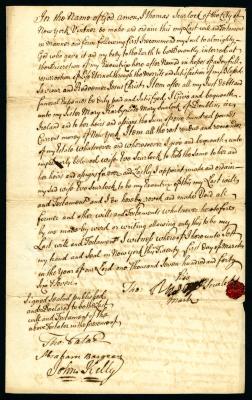 In the Name of God Amen, I Thomas Scurlock of the City of
New York Vintner do make and ordain this my last will and testament
in Manner and form following first I recommend my soul to almighty
God who gave it and my body to the Earth to be decently interred at
the discretion of my Executrix here after Named in hopes of a Joyfull
resurrection to Life Eternal through the merits and satisfaction of my blessed
Saviour and Redeemer Jesus Christ Item after all my Just Debts and
funeral Expences be duly paid and satisfied, I give and bequeath
unto my Sister Mary in Dublin in
Ireland and to her heirs and assigns the sum of one hundred pounds
Current money of New York Item all the rest residue and remainder
of my Estate whatsoever and wheresoever I give and bequeath unto
my well beloved wife Eve Scurlock to hold the same to her and
her heirs and assigns for ever, and Lastly I appoint make and ordain
my said wife Eve Scurlock to be my Executrix of this my Last will
and Testament and I do hereby revoke and make Void all
former and other wills and Testaments whatsoever heretofore
by me made by word or writing allowing only this to be my
Last will and Testament In witness whereof I have unto set
my hand and Seal in New York this Twenty first Day of March
in the Year of our Lord one Thousand Seven hundred and forty
Seven
Signed Sealed published
and Declared to be the Last
will and Testament of the
above Testator in the presence of
his
Tho: Scurlock
mark
Abraham
John Kelly